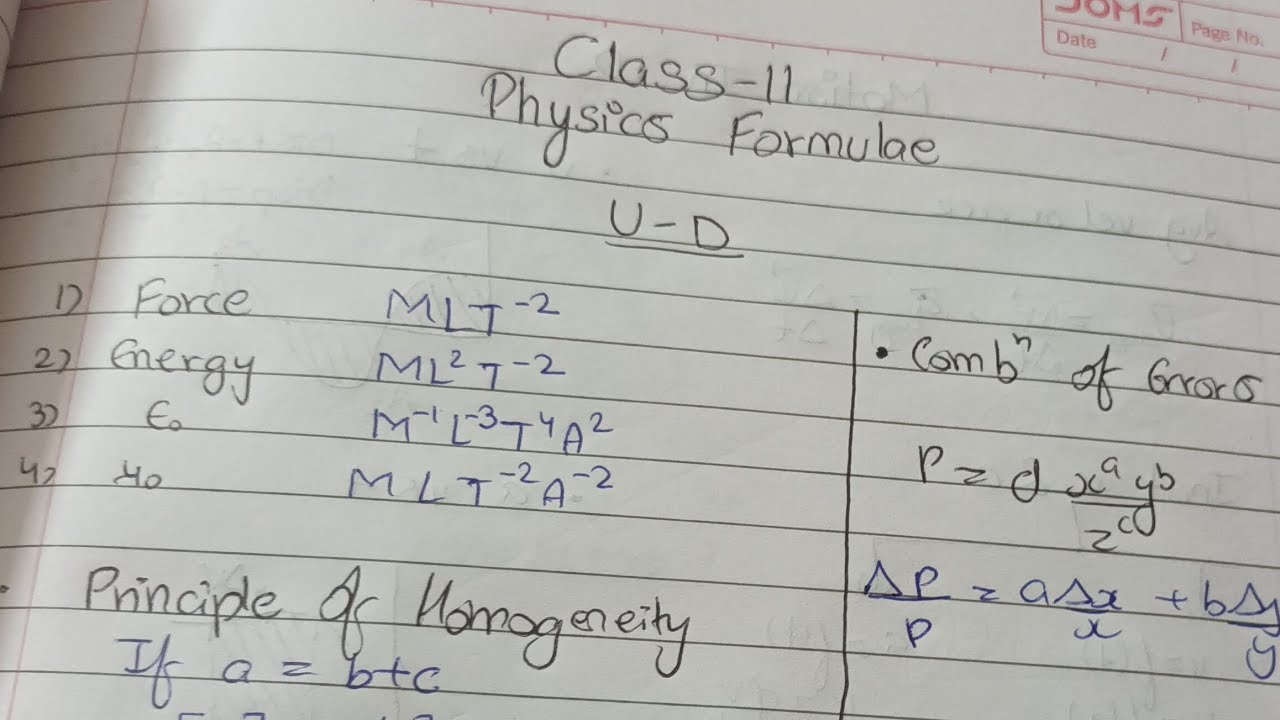 DOMS
Page No.
Date / /
Class-11
Physics Formulae
U-D
1) Force MLT⁻²
2) Energy ML²T⁻²
3) ε₀ M⁻¹L⁻³T⁴A²
4) μ₀ MLT⁻²A⁻²
• Principle Of Homogeneity
If a = b+c
• Combⁿ of Errors
P = d xᵃ yᵇ / zᶜ
ΔP/P = a Δx/x + b Δy/y